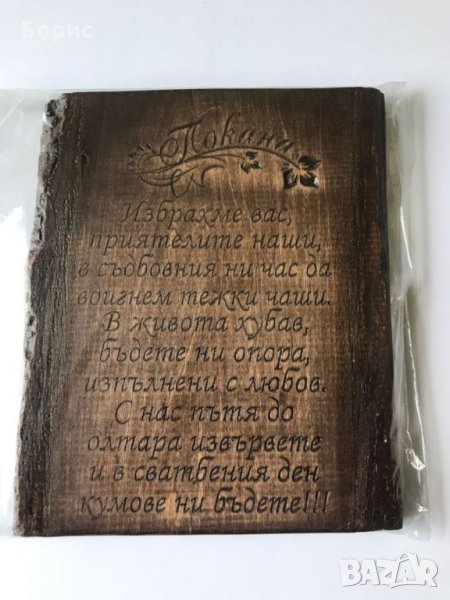 Борис
Покана
Избрахме вас,
приятелите наши,
в съдбовния ни час да
воигнем тежки чаши.
В живота хубав,
бъдете ни опора,
изпълнени с любов.
С нас пътя до
олтара извървете
и в сватбения ден
кумове ни бъдете!!!
BAZAR